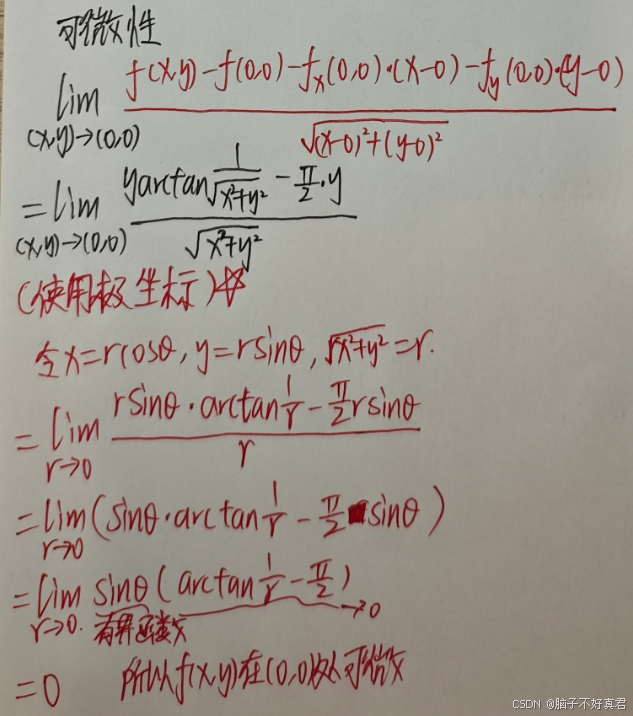 可微性
lim_{(x,y)→(0,0)} \frac{f(x,y)-f(0,0)-f_x(0,0)·(x-0)-f_y(0,0)·(y-0)}{\sqrt{(x-0)^2+(y-0)^2}}
=lim_{(x,y)→(0,0)} \frac{yarctan\frac{1}{\sqrt{x^2+y^2}}-\frac{π}{2}·y}{\sqrt{x^2+y^2}}
(使用极坐标)☆
令x=rcosθ,y=rsinθ,\sqrt{x^2+y^2}=r.
=lim_{r→0} \frac{rsinθ·arctan\frac{1}{r}-\frac{π}{2}rsinθ}{r}
=lim_{r→0}(sinθ·arctan\frac{1}{r}-\frac{π}{2}sinθ)
=lim_{r→0.} sinθ(arctan\frac{1}{r}-\frac{π}{2})→0
有界函数
=0 所以f(x,y)在(0,0)处可微
CSDN @脑子不好真君